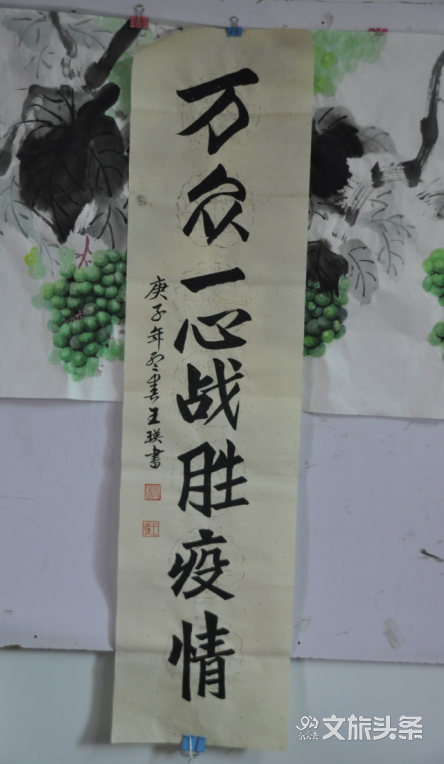 万众一心战胜疫情
庚子年孟春王瑛书
文旅头条